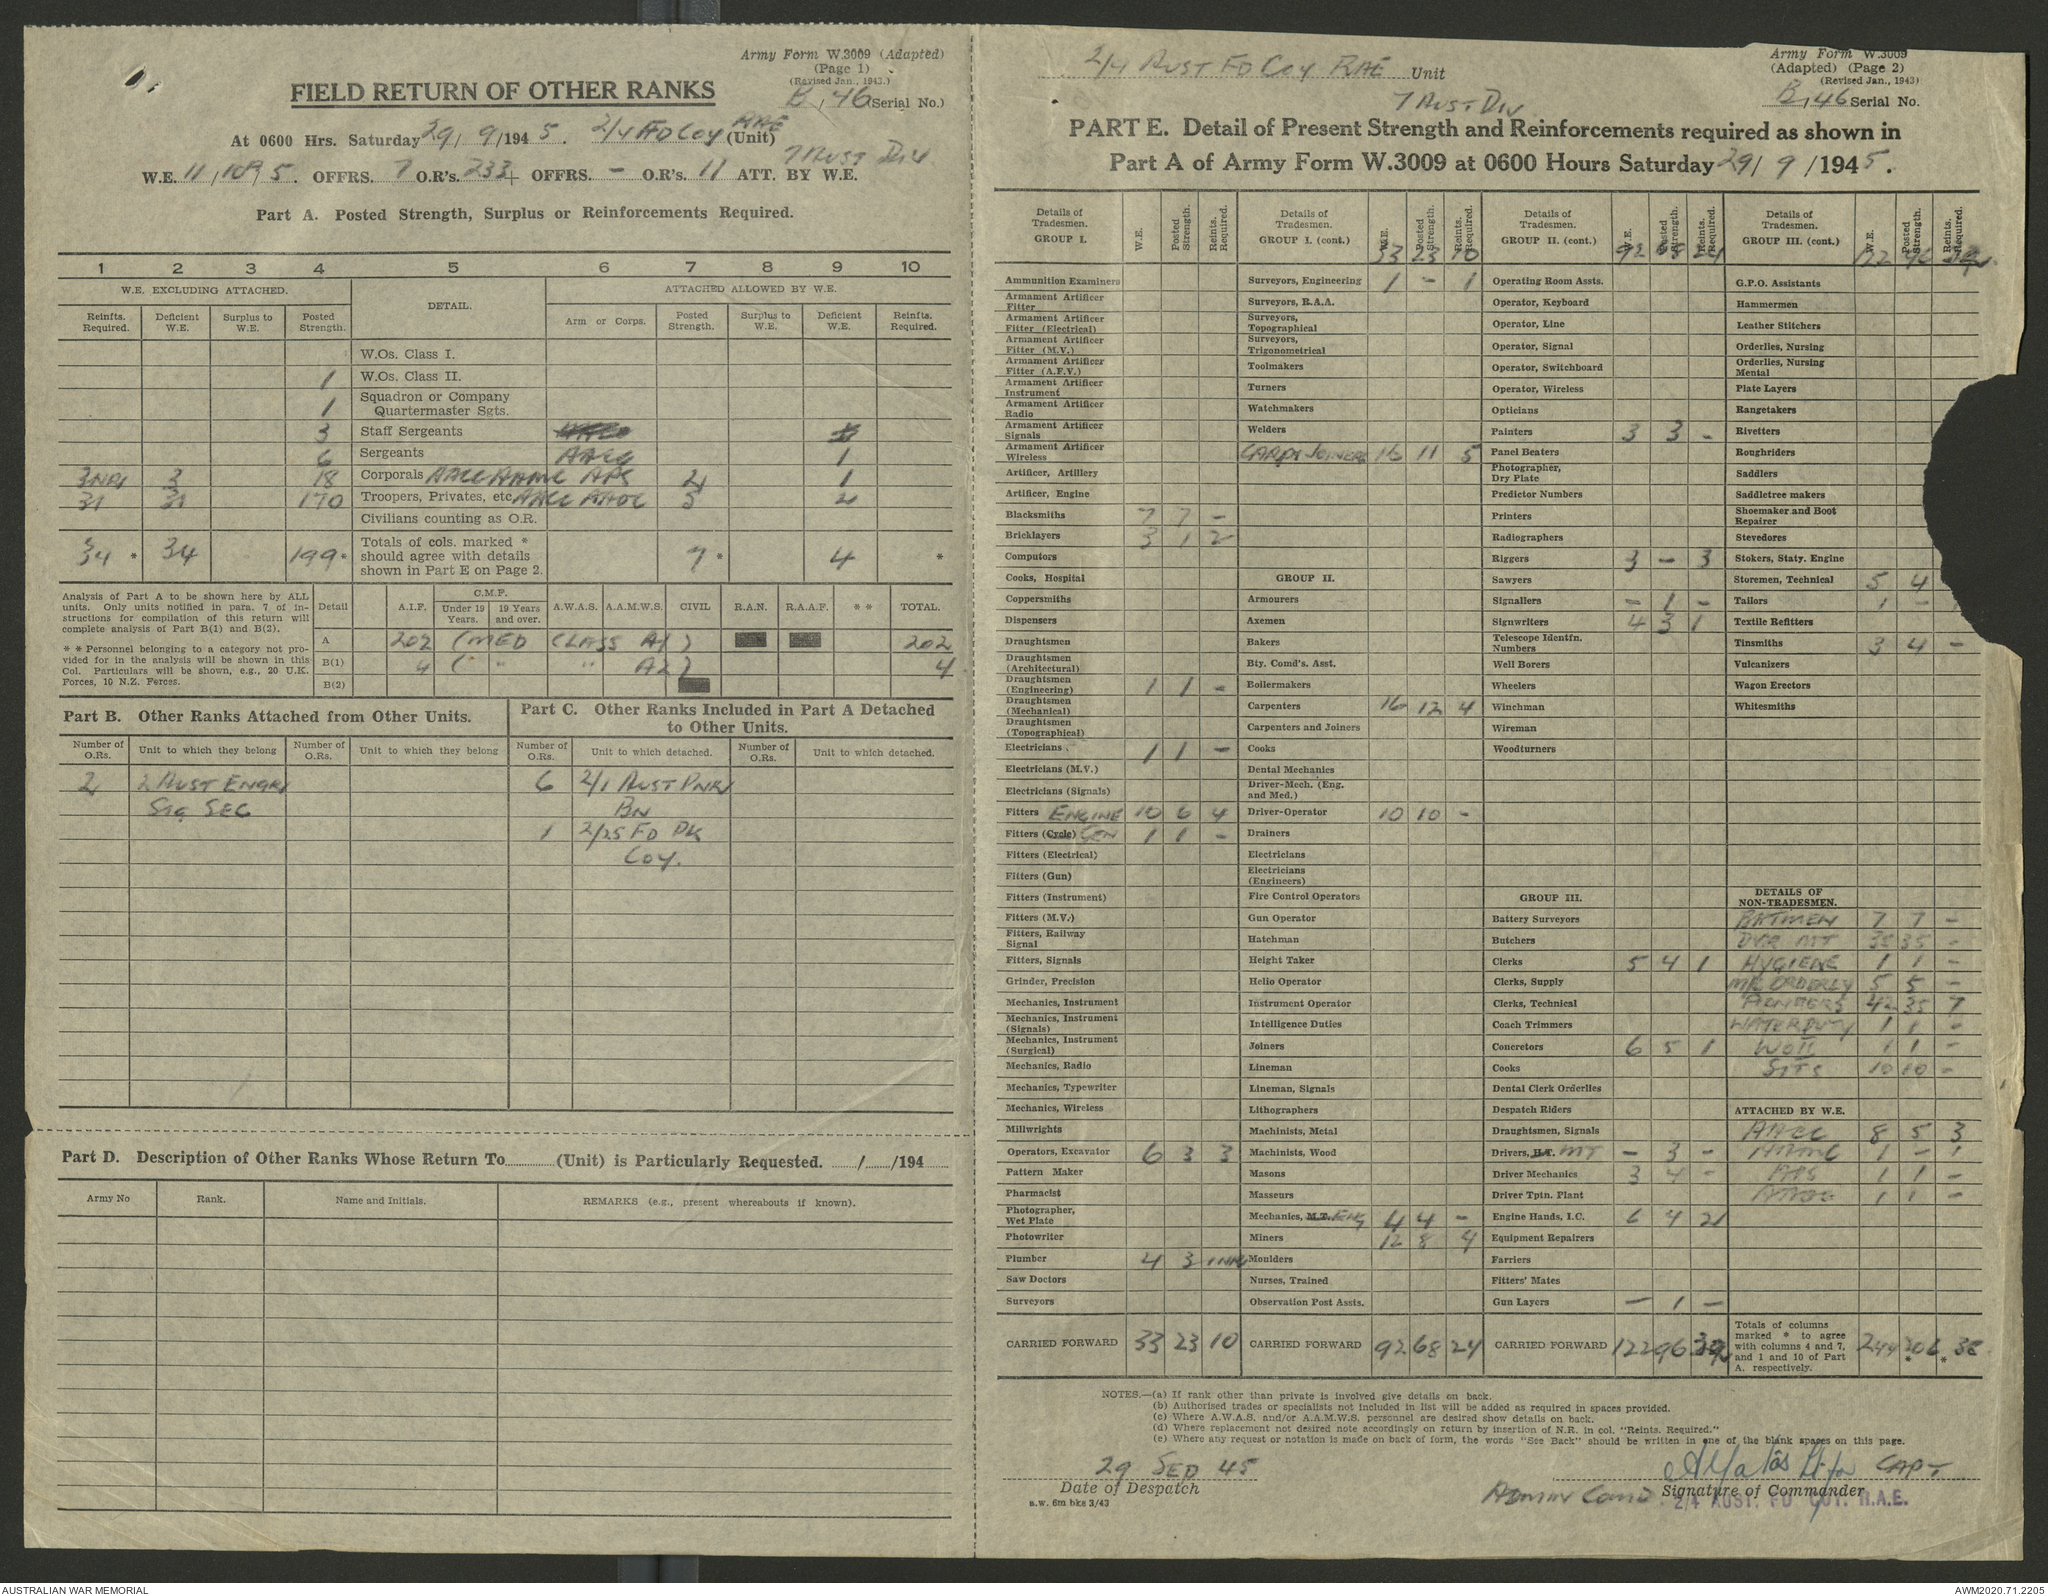 Army Form W.3009 (Adapted)
(Page 1)
(Revised Jan., 1943.)
FIELD RETURN OF OTHER RANKS
B, 46 (Serial No.)
At 0600 Hrs. Saturday 29/9/1945. 2/4 FD COY RAE (Unit)
7 AUST DIV
W.E. 11, 5. OFFRS. 7 O.R's. 233 + OFFRS. - O.R's. 11 ATT. BY W.E.
Part A. Posted Strength, Surplus or Reinforcements Required.
1 2 3 4 5 6 7 8 9 10
W.E. EXCLUDING ATTACHED. DETAIL. ATTACHED ALLOWED BY W.E.
Reinfts. Required. Deficient W.E. Surplus to W.E. Posted Strength. Arm or Corps. Posted Strength. Surplus to W.E. Deficient W.E. Reinfts. Required.
W.Os. Class I.
1 W.Os. Class II.
1 Squadron or Company Quartermaster Sgts.
3 Staff Sergeants
6 Sergeants AACC 1
3 NR 3 18 Corporals AACC AAMC APS 2 1
31 31 170 Troopers, Privates, etc. AACC AAOC 5 2
Civilians counting as O.R.
34 * 34 199 * Totals of cols. marked * should agree with details shown in Part E on Page 2. 7 * 4 *
Analysis of Part A to be shown here by ALL units. Only units notified in para. 7 of instructions for compilation of this return will complete analysis of Part B(1) and B(2).
* * Personnel belonging to a category not provided for in the analysis will be shown in this Col. Particulars will be shown, e.g., 20 U.K. Forces, 10 N.Z. Forces.
Detail A.I.F. C.M.F. Under 19 Years. 19 Years and over. A.W.A.S. A.A.M.W.S. CIVIL R.A.N. R.A.A.F. * * TOTAL.
A 202 (MED CLASS A1) 202
B(1) 4 ( " " A2) 4
B(2)
Part B. Other Ranks Attached from Other Units.
Number of O.Rs. Unit to which they belong Number of O.Rs. Unit to which they belong
2 2 AUST ENGRS
SIG SEC
Part C. Other Ranks Included in Part A Detached to Other Units.
Number of O.Rs. Unit to which detached. Number of O.Rs. Unit to which detached.
6 2/1 AUST PNR
BN
1 2/25 FD PK
COY.
Part D. Description of Other Ranks Whose Return To (Unit) is Particularly Requested. / /194
Army No Rank. Name and Initials. REMARKS (e.g., present whereabouts if known).
2/4 AUST FD COY RAE Unit
7 AUST DIV
Army Form W.3009
(Adapted) (Page 2)
(Revised Jan., 1943)
B, 46 Serial No.
PART E. Detail of Present Strength and Reinforcements required as shown in
Part A of Army Form W.3009 at 0600 Hours Saturday 29/9/1945.
Details of Tradesmen. GROUP I. W.E. Posted Strength. Reints. Required.
Ammunition Examiners
Armament Artificer Fitter
Armament Artificer Fitter (Electrical)
Armament Artificer Fitter (M.V.)
Armament Artificer Fitter (A.F.V.)
Armament Artificer Instrument
Armament Artificer Radio
Armament Artificer Signals
Armament Artificer Wireless
Artificer, Artillery
Artificer, Engine
Blacksmiths 7 7 -
Bricklayers 3 1 2
Computors
Cooks, Hospital
Coppersmiths
Dispensers
Draughtsmen
Draughtsmen (Architectural)
Draughtsmen (Engineering) 1 1 -
Draughtsmen (Mechanical)
Draughtsmen (Topographical)
Electricians 1 1 -
Electricians (M.V.)
Electricians (Signals)
Fitters ENGINE 10 6 4
Fitters (Cycle) GEN 1 1 -
Fitters (Electrical)
Fitters (Gun)
Fitters (Instrument)
Fitters (M.V.)
Fitters, Railway Signal
Fitters, Signals
Grinder, Precision
Mechanics, Instrument
Mechanics, Instrument (Signals)
Mechanics, Instrument (Surgical)
Mechanics, Radio
Mechanics, Typewriter
Mechanics, Wireless
Millwrights
Operators, Excavator 6 3 3
Pattern Maker
Pharmacist
Photographer, Wet Plate
Photowriter
Plumber 4 3 1 NR
Saw Doctors
Surveyors
CARRIED FORWARD 33 23 10
Details of Tradesmen. GROUP I. (cont.) W.E. Posted Strength. Reints. Required.
33 23 10
Surveyors, Engineering 1 - 1
Surveyors, R.A.A.
Surveyors, Topographical
Surveyors, Trigonometrical
Toolmakers
Turners
Watchmakers
Welders
CARP & JOINERS 16 11 5
GROUP II.
Armourers
Axemen
Bakers
Bty. Comd's. Asst.
Boilermakers
Carpenters 16 12 4
Carpenters and Joiners
Cooks
Dental Mechanics
Driver-Mech. (Eng. and Med.)
Driver-Operator 10 10 -
Drainers
Electricians
Electricians (Engineers)
Fire Control Operators
Gun Operator
Hatchman
Height Taker
Helio Operator
Instrument Operator
Intelligence Duties
Joiners
Lineman
Lineman, Signals
Lithographers
Machinists, Metal
Machinists, Wood
Masons
Masseurs
Mechanics, M.T. ENG 4 4 -
Miners 12 8 4
Moulders
Nurses, Trained
Observation Post Assts.
CARRIED FORWARD 92 68 24
Details of Tradesmen. GROUP II. (cont.) W.E. Posted Strength. Reints. Required.
92 68 24
Operating Room Assts.
Operator, Keyboard
Operator, Line
Operator, Signal
Operator, Switchboard
Operator, Wireless
Opticians
Painters 3 3 -
Panel Beaters
Photographer, Dry Plate
Predictor Numbers
Printers
Radiographers
Riggers 3 - 3
Sawyers
Signallers - 1 -
Signwriters 4 3 1
Telescope Identfn. Numbers
Well Borers
Wheelers
Winchman
Wireman
Woodturners
GROUP III.
Battery Surveyors
Butchers
Clerks 5 4 1
Clerks, Supply
Clerks, Technical
Coach Trimmers
Concretors 6 5 1
Cooks
Dental Clerk Orderlies
Despatch Riders
Draughtsmen, Signals
Drivers, H.T. MT - 3 -
Driver Mechanics 3 4 -
Driver Tptn. Plant
Engine Hands, I.C. 6 4 2
Equipment Repairers
Farriers
Fitters' Mates
Gun Layers - 1 -
CARRIED FORWARD 122 96
Details of Tradesmen. GROUP III. (cont.) W.E. Posted Strength. Reints. Required.
122 96
G.P.O. Assistants
Hammermen
Leather Stitchers
Orderlies, Nursing
Orderlies, Nursing Mental
Plate Layers
Rangetakers
Rivetters
Roughriders
Saddlers
Saddletree makers
Shoemaker and Boot Repairer
Stevedores
Stokers, Staty. Engine
Storemen, Technical 5 4
Tailors 1 - 1
Textile Refitters
Tinsmiths 3 4 -
Vulcanizers
Wagon Erectors
Whitesmiths
DETAILS OF NON-TRADESMEN.
BATMEN 7 7 -
DVR MT 35 35 -
HYGIENE 1 1 -
ORDERLY 5 5 -
PIONEERS 42 35 7
WATER DUTY 1 1 -
WOII 1 1 -
SGTS 10 10 -
ATTACHED BY W.E.
AACC 8 5 3
AAMC 1 - 1
APS 1 1 -
AAOC 1 1 -
Totals of columns marked * to agree with columns 4 and 7, and 1 and 10 of Part A. respectively. 244 206 * * 38
NOTES.—(a) If rank other than private is involved give details on back.
(b) Authorised trades or specialists not included in list will be added as required in spaces provided.
(c) Where A.W.A.S. and/or A.A.M.W.S. personnel are desired show details on back.
(d) Where replacement not desired note accordingly on return by insertion of N.R. in col. "Reints. Required."
(e) Where any request or notation is made on back of form, the words "See Back" should be written in one of the blank spaces on this page.
29 SEP 45
Date of Despatch
a.w. 6m bks 3/43
Lt for CAPT
ADMIN COMD. Signature of Commander
2/4 AUST. FD COY. R.A.E.
AUSTRALIAN WAR MEMORIAL
AWM2020.71.2205